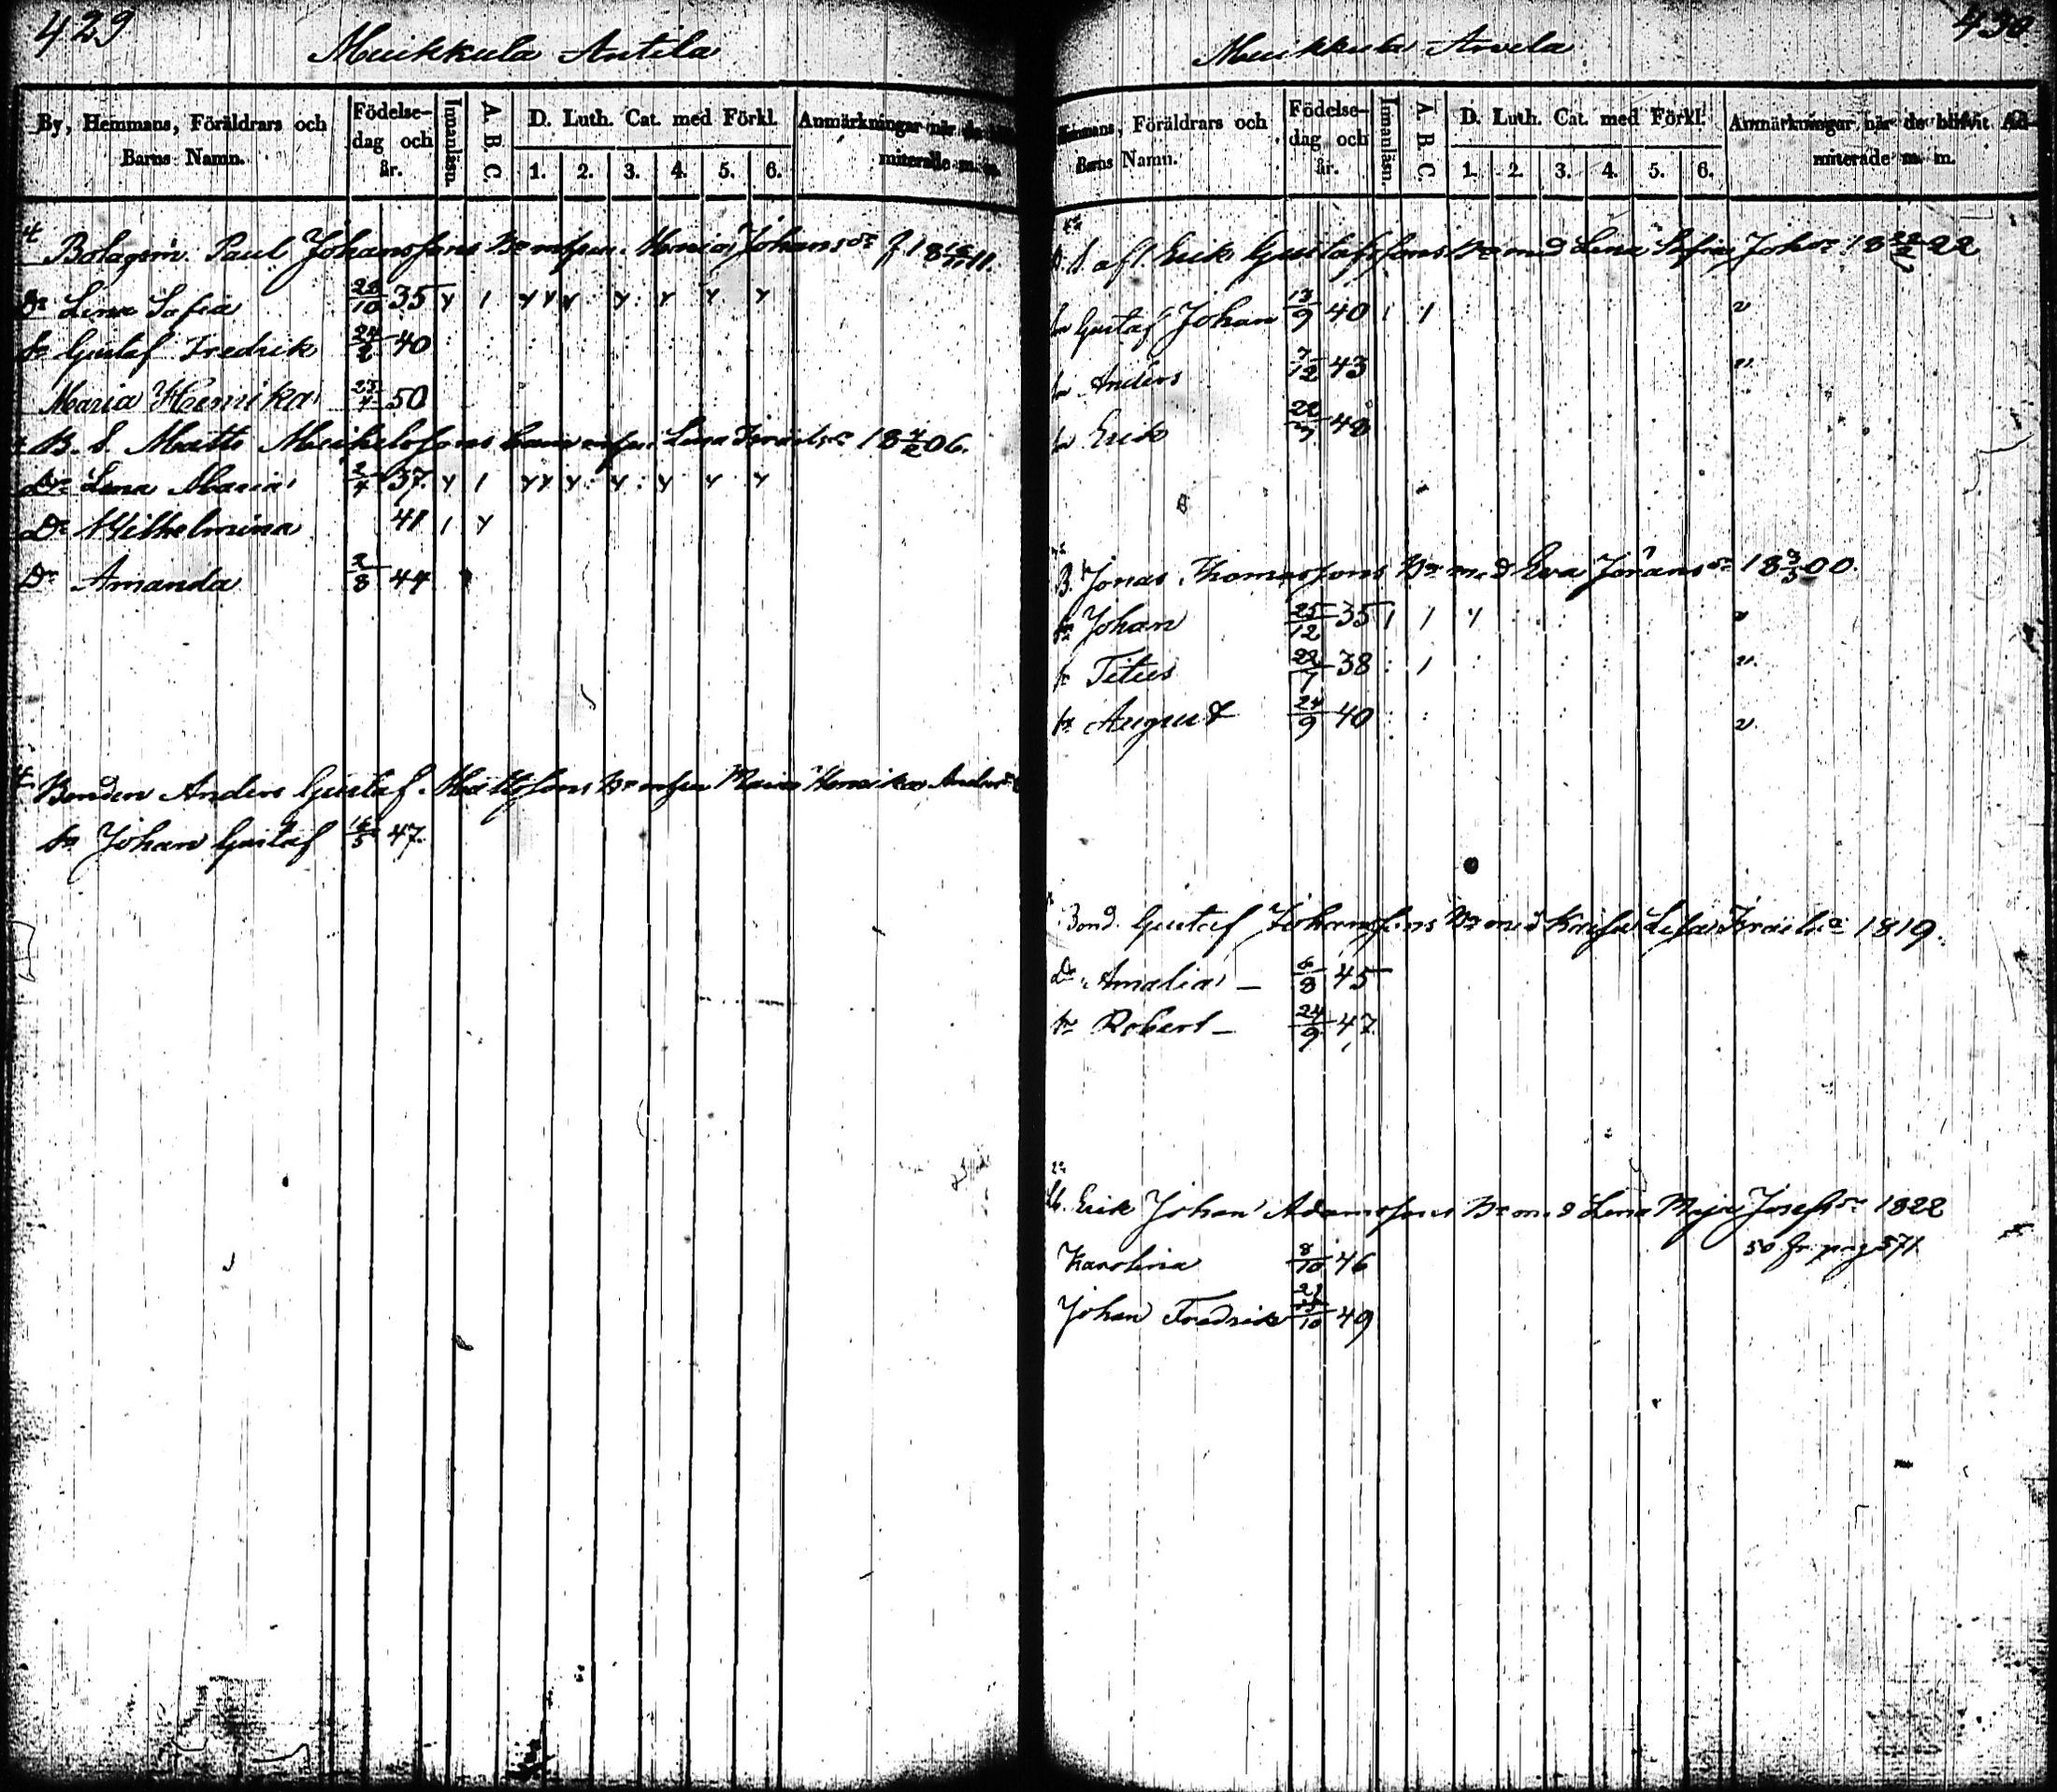 429
Muikkula Antila
By, Hemmans, Föräldrars och Barns Namn.
Födelse-dag och år.
Innanläsn.
A. B. C.
D. Luth. Cat. med Förkl.
1. 2. 3. 4. 5. 6.
Anmärkningar när de miterade m. m.
Bolagsm. Paul Johanssons Maria Johansdr f. 18 11.
Dr Lena Sofia 10 35
Sn Gustaf Fredrik 24/2 40
Maria Henrika 50
B. S. Matts Michelssons Lena Israelsdr 18 4/2 06.
Dr Lena Maria 37
Dr Wilhelmina 41
Dr Amanda 2/8 44
Bonden Anders Gustaf Mattssons Maria Henrika Andersdr
Sn Johan Gustaf 47
430
Muikkula Arvela
Hemmans, Föräldrars och Barns Namn.
Födelse-dag och år.
Innanläsn.
A. B. C.
D. Luth. Cat. med Förkl.
1. 2. 3. 4. 5. 6.
Anmärkningar när de blifvit Ad-miterade m. m.
Erik Gustafssons Br med Lena Sofia Johdr 18 22
Sn Gustaf Johan 13/9 40
Sn Anders 7/12 43
Sn Erik 48
B. Jonas Thomassons Br med Eva Jöransdr 18 00.
Sn Johan 25/12 35
Sn Titus 22/7 38
Sn August 24/9 40
Bond. Gustaf Johanssons Br med Kajsa Lisa Israelsdr 1819.
Dr Amalia 6/8 45
Sn Robert 24/9 47
Erik Johan Adamssons Br med Lena Maja Josefsdr 1822
50 fr. pag 571
Karolina 8/10 46
Johan Fredrik 10 49